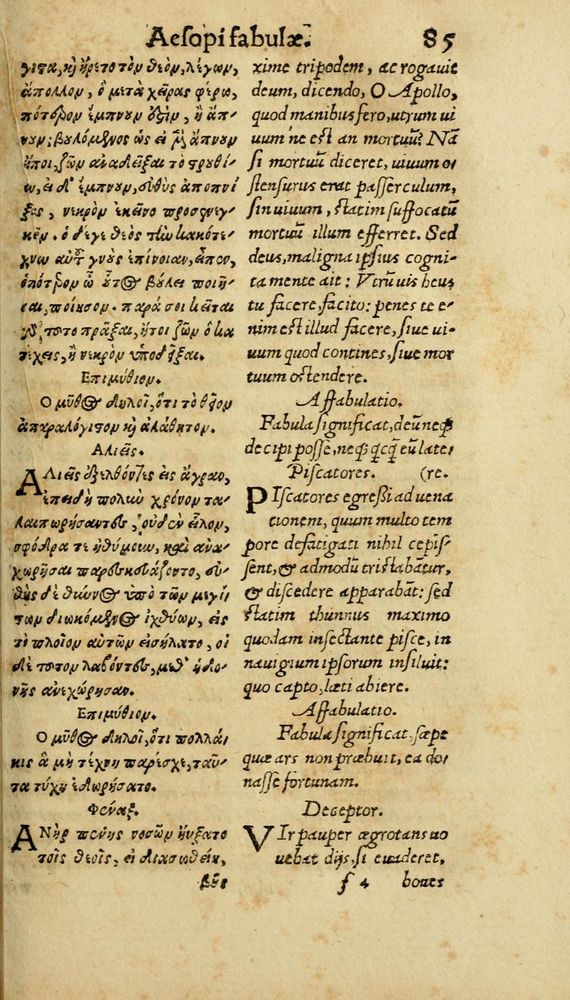 Aeſopi fabulæ. 85
γιϛα, καὶ ἤρετο τὸν θεὸν, λέγων,
ἄπολλον, ὃ μετὰ χεῖρας φέρω,
πότερον ἔμπνουν ἐϛὶν, ἢ ἄπν-
νουν; βουλόμενος ὡς εἰ μὲν ἄπνουν
ἤποι, ζῶν ἀναδεῖξαι τὸ ϛρουθί-
ον, εἰ δ' ἔμπνουν, εὐθὺς ἀποπνί-
ξας, νεκρὸν ἐκεῖνο προσενεγ-
κεῖν. ὁ δέ γε θεὸς τὴν κακότε-
χνον αὐτοῦ γνοὺς ἐπίνοιαν, εἶπεν,
ὁπότερον ὦ οὗτος βούλει ποιῆ-
σαι, ποίησον. παρὰ σοὶ κεῖται
γὰρ τοῦτο πρᾶξαι, ἤτοι ζῶν ὃ κα
τέχεις, ἢ νεκρὸν ὑποδεῖξαι.
Επιμύθιον.
Ο μῦθος δηλοῖ, ὅτι τὸ θεῖον
ἀπαραλόγιϛον καὶ ἀλάθητον.
Αλιεῖς.
ΑΛιεῖς ἐξελθόντες εἰς ἄγραν,
ἐπειδὴ πολὺν χρόνον τα-
λαιπωρήσαντες, οὐδὲν εἷλον,
σφόδρα τε ἠθύμουν, καὶ ἀνα-
χωρῆσαι παρεσκευάζοντο, εὐ-
θὺς δὲ θύννος ὑπὸ τῶν μεγίϛων
διωκόμενος ἰχθύων, εἰς
τὸ πλοῖον αὐτῶν εἰσήλατο, οἱ
δὲ τοῦτον λαβόντες, μεθ' ἡδο-
νῆς ἀνεχώρησαν.
Επιμύθιον.
Ο μῦθος δηλοῖ, ὅτι πολλά-
κις ἃ μὴ τέχνη παρέσχε, ταῦ-
τα τύχη ἐδωρήσατο.
Φέναξ.
ΑΝὴρ πένης νοσῶν ηὔξατο
τοῖς θεοῖς, εἰ διασωθείη,
βοῦς
xime tripodem, ac rogauit
deum, dicendo, O Apollo,
quod manibus fero, utrum ui
uum ne eſt an mortuū? Nā
ſi mortuū diceret, uiuum o-
ſtenſurus erat paſſerculum,
ſin uiuum, ſtatim ſuffocatū
mortuū illum efferret. Sed
deus, maligna ipſius cogni-
ta mente ait: Vtrū uis heus
tu facere, facito: penes te e-
nim eſt illud facere, ſiue ui-
uum quod contines, ſiue mor
tuum oſtendere.
Affabulatio.
Fabula ſignificat, deū neq;
decipi poſſe, neq; qcq̃ eū late-
Piſcatores. (re.
PIſcatores egreßi ad uena
tionem, quum multo tem
pore defatigati nihil cepiſ-
ſent, & admodū triſtabātur,
& diſcedere apparabāt: ſed
ſtatim thunnus maximo
quodam inſectante piſce, in
nauigium ipſorum inſiluit:
quo capto, læti abiere.
Affabulatio.
Fabula ſignificat, ſæpe
quæ ars non præbuit, ea do-
naſſe fortunam.
Deceptor.
VIr pauper ægrotans uo
uebat dijs, ſi euaderet,
f 4 boues